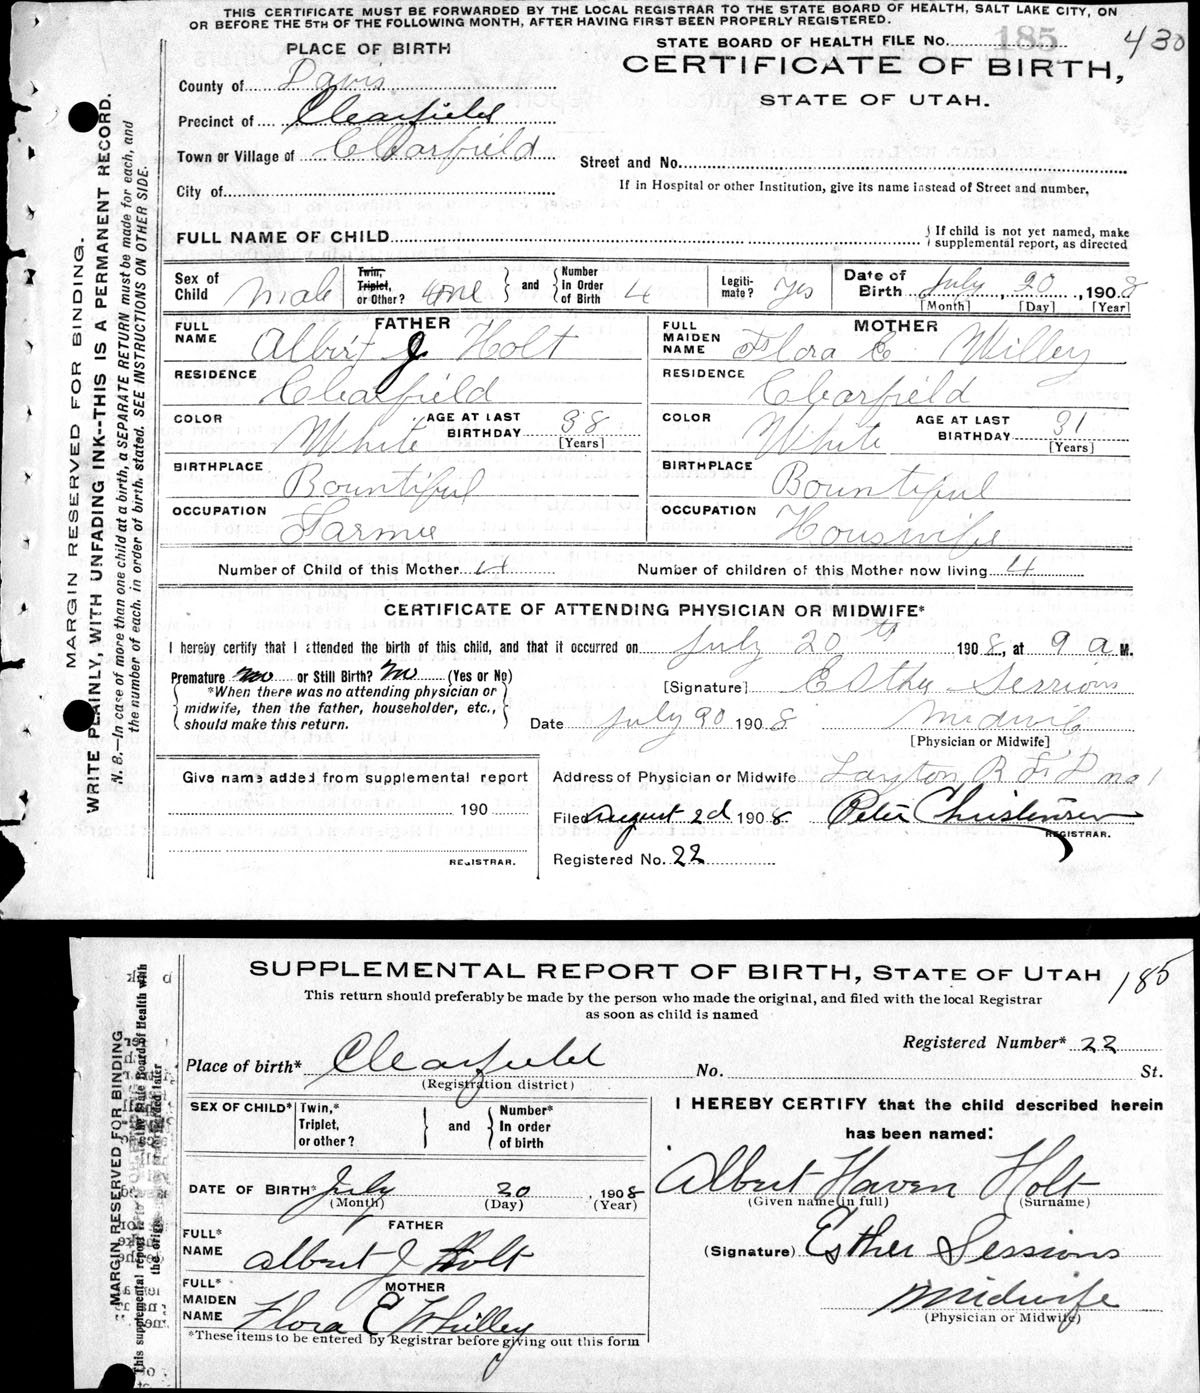 THIS CERTIFICATE MUST BE FORWARDED BY THE LOCAL REGISTRAR TO THE STATE BOARD OF HEALTH, SALT LAKE CITY, ON
OR BEFORE THE 5TH OF THE FOLLOWING MONTH, AFTER HAVING FIRST BEEN PROPERLY REGISTERED.
PLACE OF BIRTH
STATE BOARD OF HEALTH FILE No. 185 430
CERTIFICATE OF BIRTH,
STATE OF UTAH.
County of Davis
Precinct of Clearfield
Town or Village of Clearfield
Street and No.
City of
If in Hospital or other Institution, give its name instead of Street and number,
FULL NAME OF CHILD
If child is not yet named, make
supplemental report, as directed
Sex of Child Male
Twin, Triplet, or Other? one
and Number In Order of Birth 4
Legiti-mate? Yes
Date of Birth July 20, 1908
[Month] [Day] [Year]
FATHER
FULL NAME Albert J Holt
RESIDENCE Clearfield
COLOR White AGE AT LAST BIRTHDAY 38
[Years]
BIRTHPLACE Bountiful
OCCUPATION Farmer
MOTHER
FULL MAIDEN NAME Flora E Willey
RESIDENCE Clearfield
COLOR White AGE AT LAST BIRTHDAY 31
[Years]
BIRTHPLACE Bountiful
OCCUPATION Houswife
Number of Child of this Mother 4 Number of children of this Mother now living 4
CERTIFICATE OF ATTENDING PHYSICIAN OR MIDWIFE*
I hereby certify that I attended the birth of this child, and that it occurred on July 20th 1908, at 9 a M.
Premature no or Still Birth? No (Yes or No)
*When there was no attending physician or
midwife, then the father, householder, etc.,
should make this return.
[Signature] Esther Sessions
Date July 20 1908 Midwife
[Physician or Midwife]
Give name added from supplemental report
190
REGISTRAR.
Address of Physician or Midwife Layton R F D no 1
Filed August 2d 1908 Peter Christensen
REGISTRAR.
Registered No. 22
MARGIN RESERVED FOR BINDING.
WRITE PLAINLY, WITH UNFADING INK--THIS IS A PERMANENT RECORD.
N. B.—In case of more than one child at a birth, a SEPARATE RETURN must be made for each, and
the number of each, in order of birth, stated. SEE INSTRUCTIONS ON OTHER SIDE.
SUPPLEMENTAL REPORT OF BIRTH, STATE OF UTAH 185
This return should preferably be made by the person who made the original, and filed with the local Registrar
as soon as child is named
Registered Number* 22
Place of birth* Clearfield No. St.
(Registration district)
SEX OF CHILD* Twin,* Triplet, or other? and Number* In order of birth
DATE OF BIRTH* July 20, 1908
(Month) (Day) (Year)
FATHER
FULL* NAME Albert J Holt
MOTHER
FULL* MAIDEN NAME Flora E Whilley
*These items to be entered by Registrar before giving out this form
I HEREBY CERTIFY that the child described herein
has been named:
Albert Haven Holt
(Given name in full) (Surname)
(Signature) Esther Sessions
Midwife
(Physician or Midwife)
MARGIN RESERVED FOR BINDING